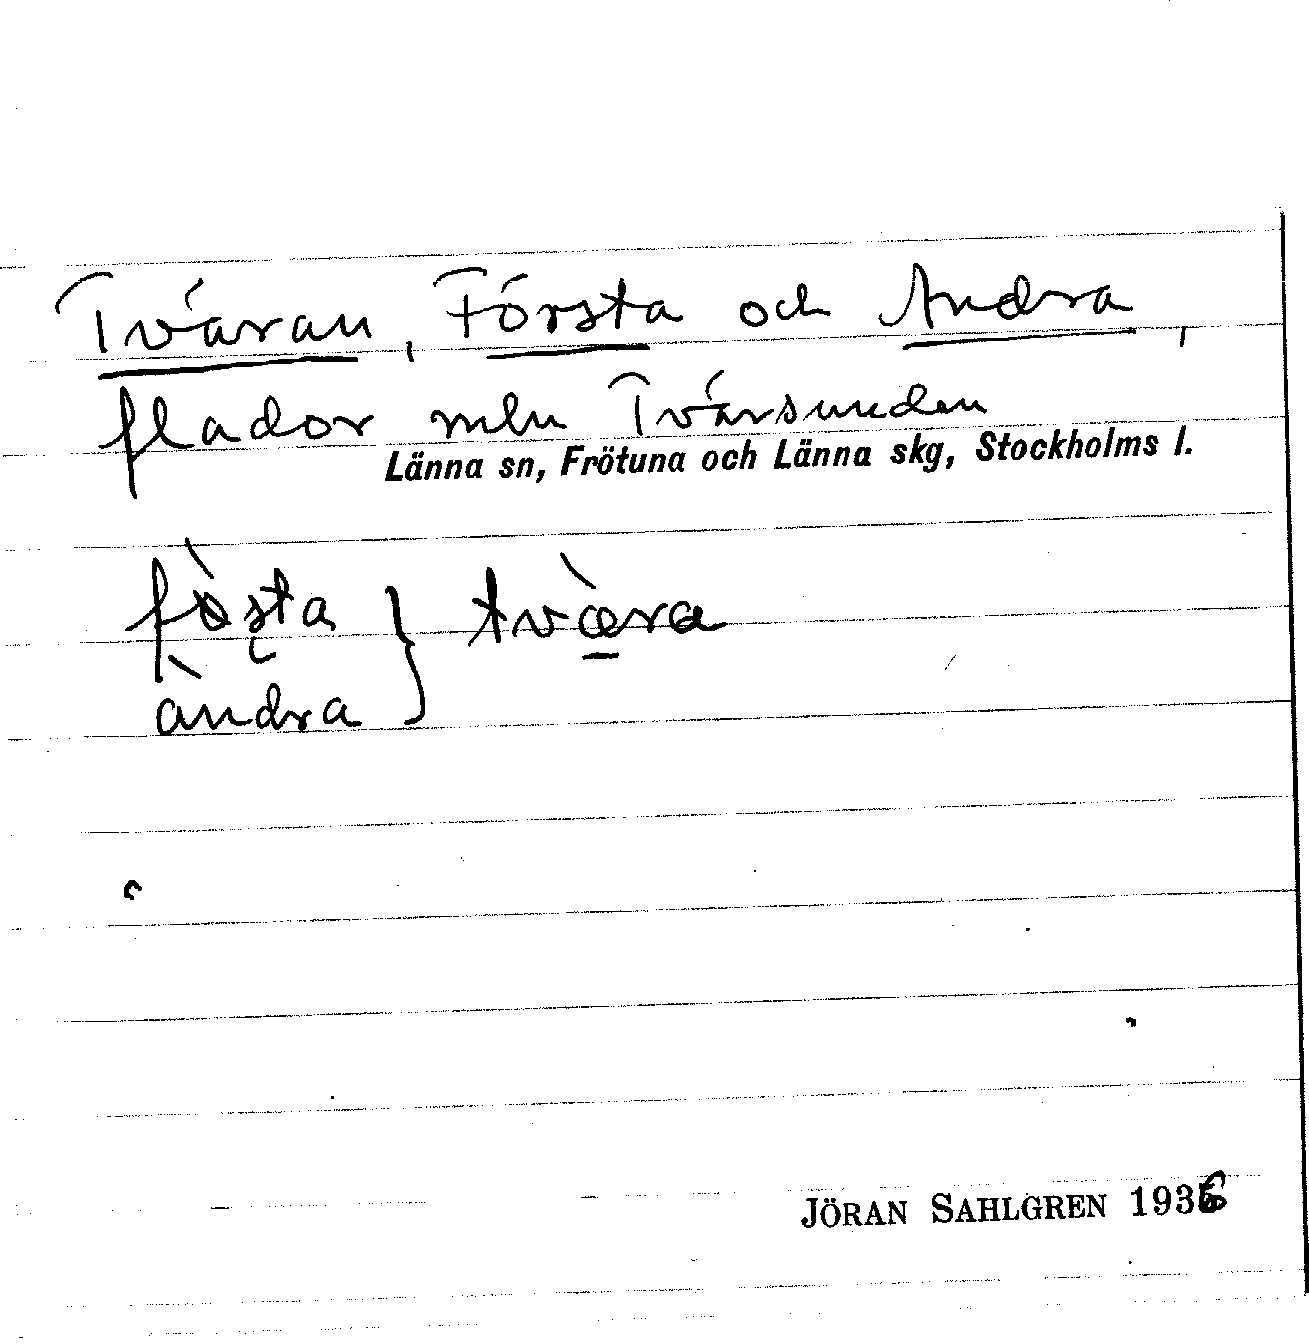 Tväran, Första och Andra,
flador mln Tvärsunden
Länna sn, Frötuna och Länna skg, Stockholms l.
fö̀sta } tvæ̀ra
àndra
JÖRAN SAHLGREN 1936